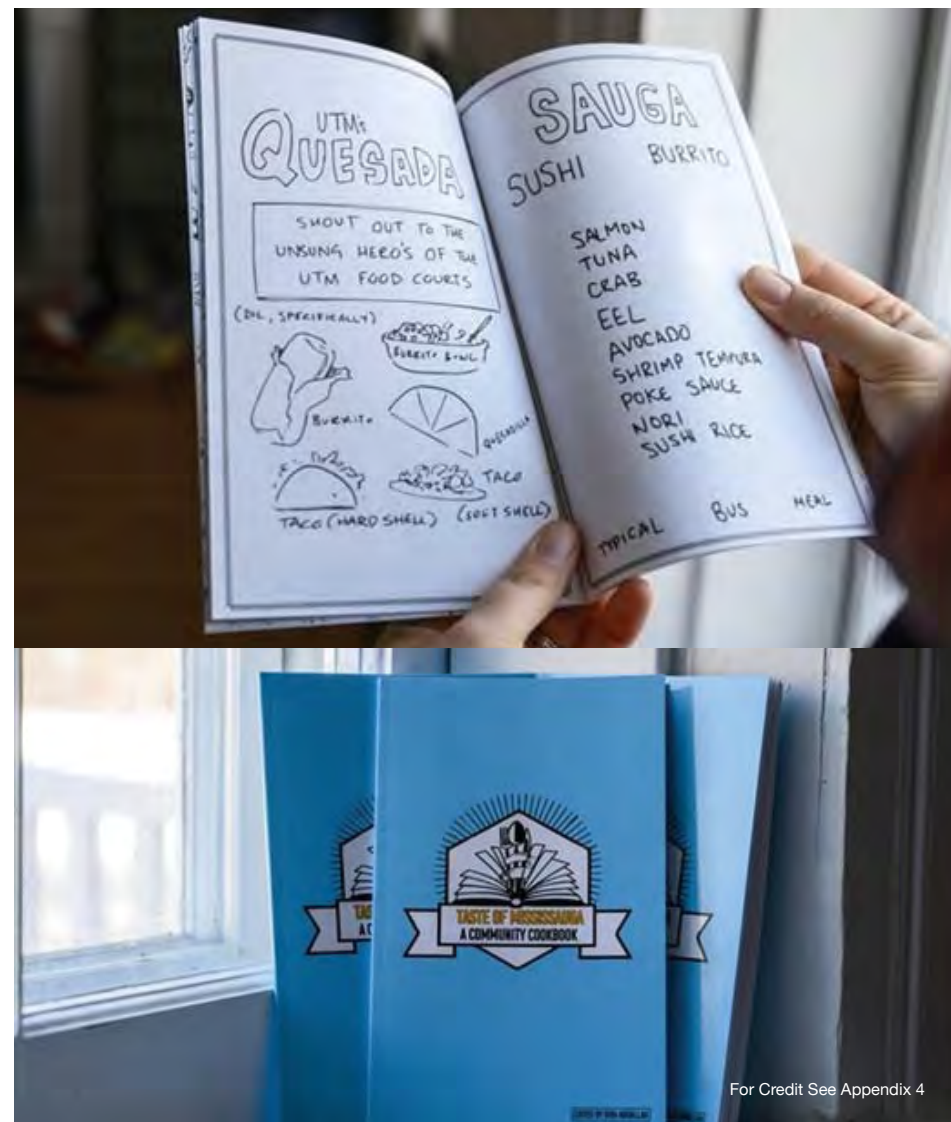 UTM's
QUESADA
SHOUT OUT TO THE
UNSUNG HERO'S OF THE
UTM FOOD COURTS
(DIL, SPECIFICALLY)
BURRITO BOWL
BURRITO
QUESADILLA
TACO
TACO (HARD SHELL) (SOFT SHELL)
SAUGA
SUSHI BURRITO
SALMON
TUNA
CRAB
EEL
AVOCADO
SHRIMP TEMPURA
POKE SAUCE
NORI
SUSHI RICE
TYPICAL BUS MEAL
TAS
A C
TASTE OF MISSISSAUGA
A COMMUNITY COOKBOOK
For Credit See Appendix 4